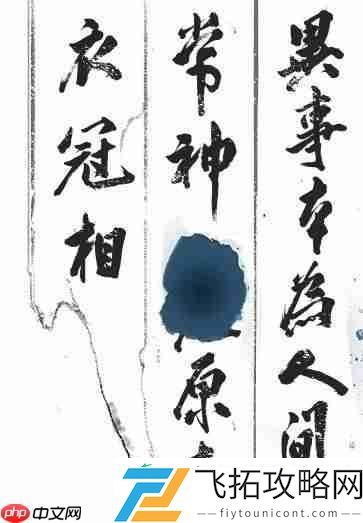 異事本為人間
常神原
衣冠相
飞拓攻略网
www.fiytounicont.com
php 中文网